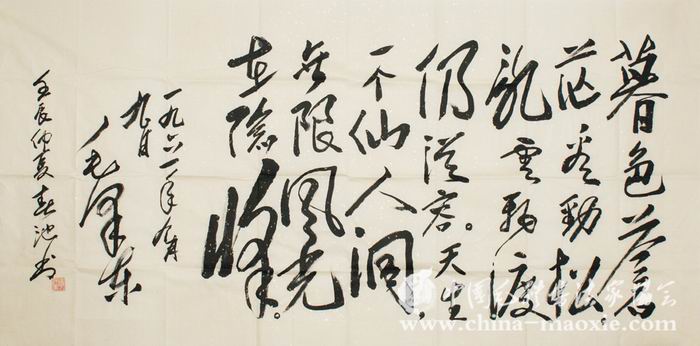 暮色蒼
茫看勁松。
亂雲飛渡
仍從容。天生
一个仙人洞，
無限風光
在險峰。
一九六一年九月
九日
毛澤东
壬辰仲夏春池书
中国毛体书法家协会
www.china-maoxie.com